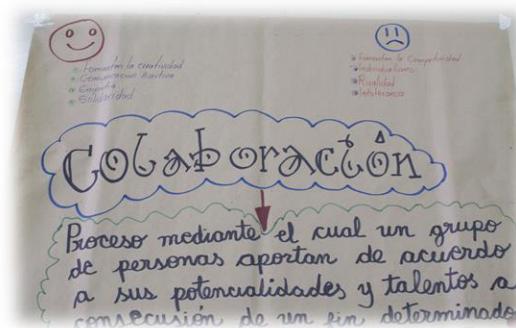 Fomentar la creatividad
Comunicación Asertiva
Empatía
Solidaridad
Fomentar la Competitividad
Individualismo
Rivalidad
Intolerancia
Colaboración
Proceso mediante el cual un grupo
de personas aportan de acuerdo
a sus potencialidades y talentos a
consecusión de un fin determinado